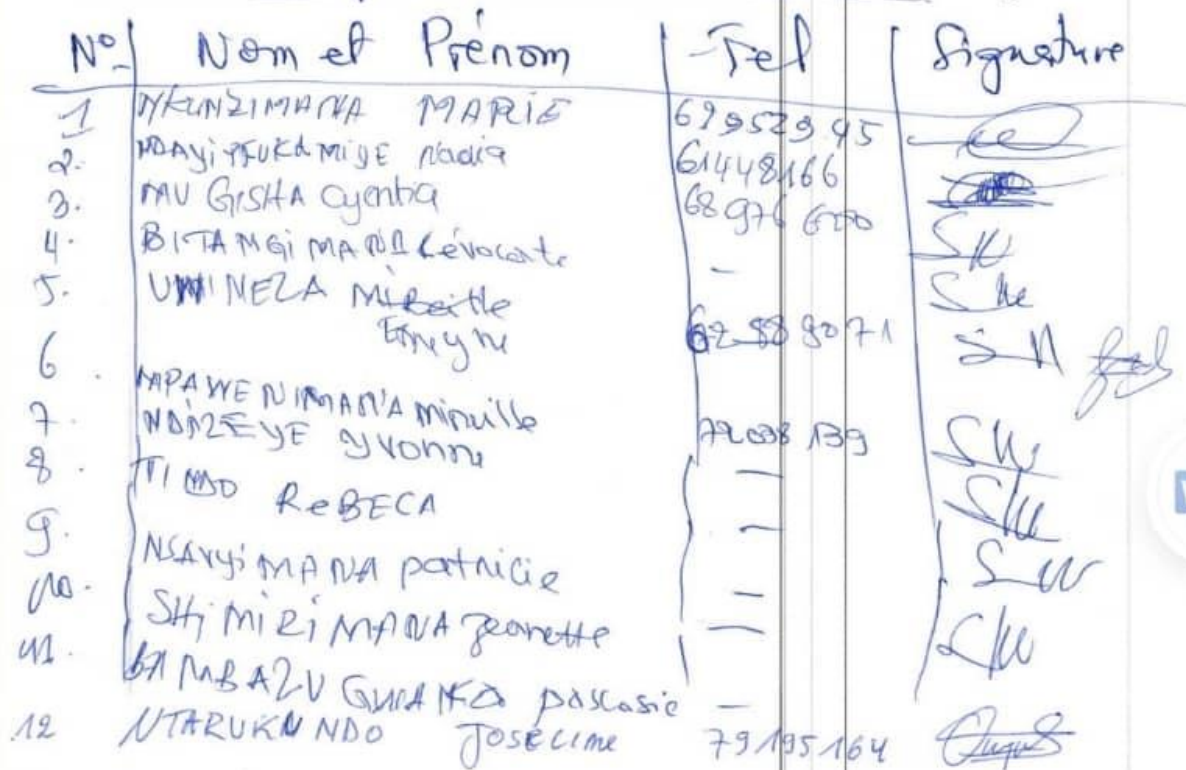 N° Nom et Prénom Tel Signature
1 NKUNZIMANA MARIE 69952945
2. NDAYITEUKAMIYE Nadia 61448166
3. MUGISHA Cyentia 68976600
4. BITANGIMANA Lévocate -
5. UWINEZA
Emeyne 62889071
6.
MPAWENIMANA Mireille
7. NDIZEYE Yvonne 72038139
8. REBECA -
9. -
NSAVYIMANA patricie
10. SHIMIRIMANA Jeanette -
11. -
BAMBAZU pascasie -
12 NTARUKUNDO JOSELINE 79195164